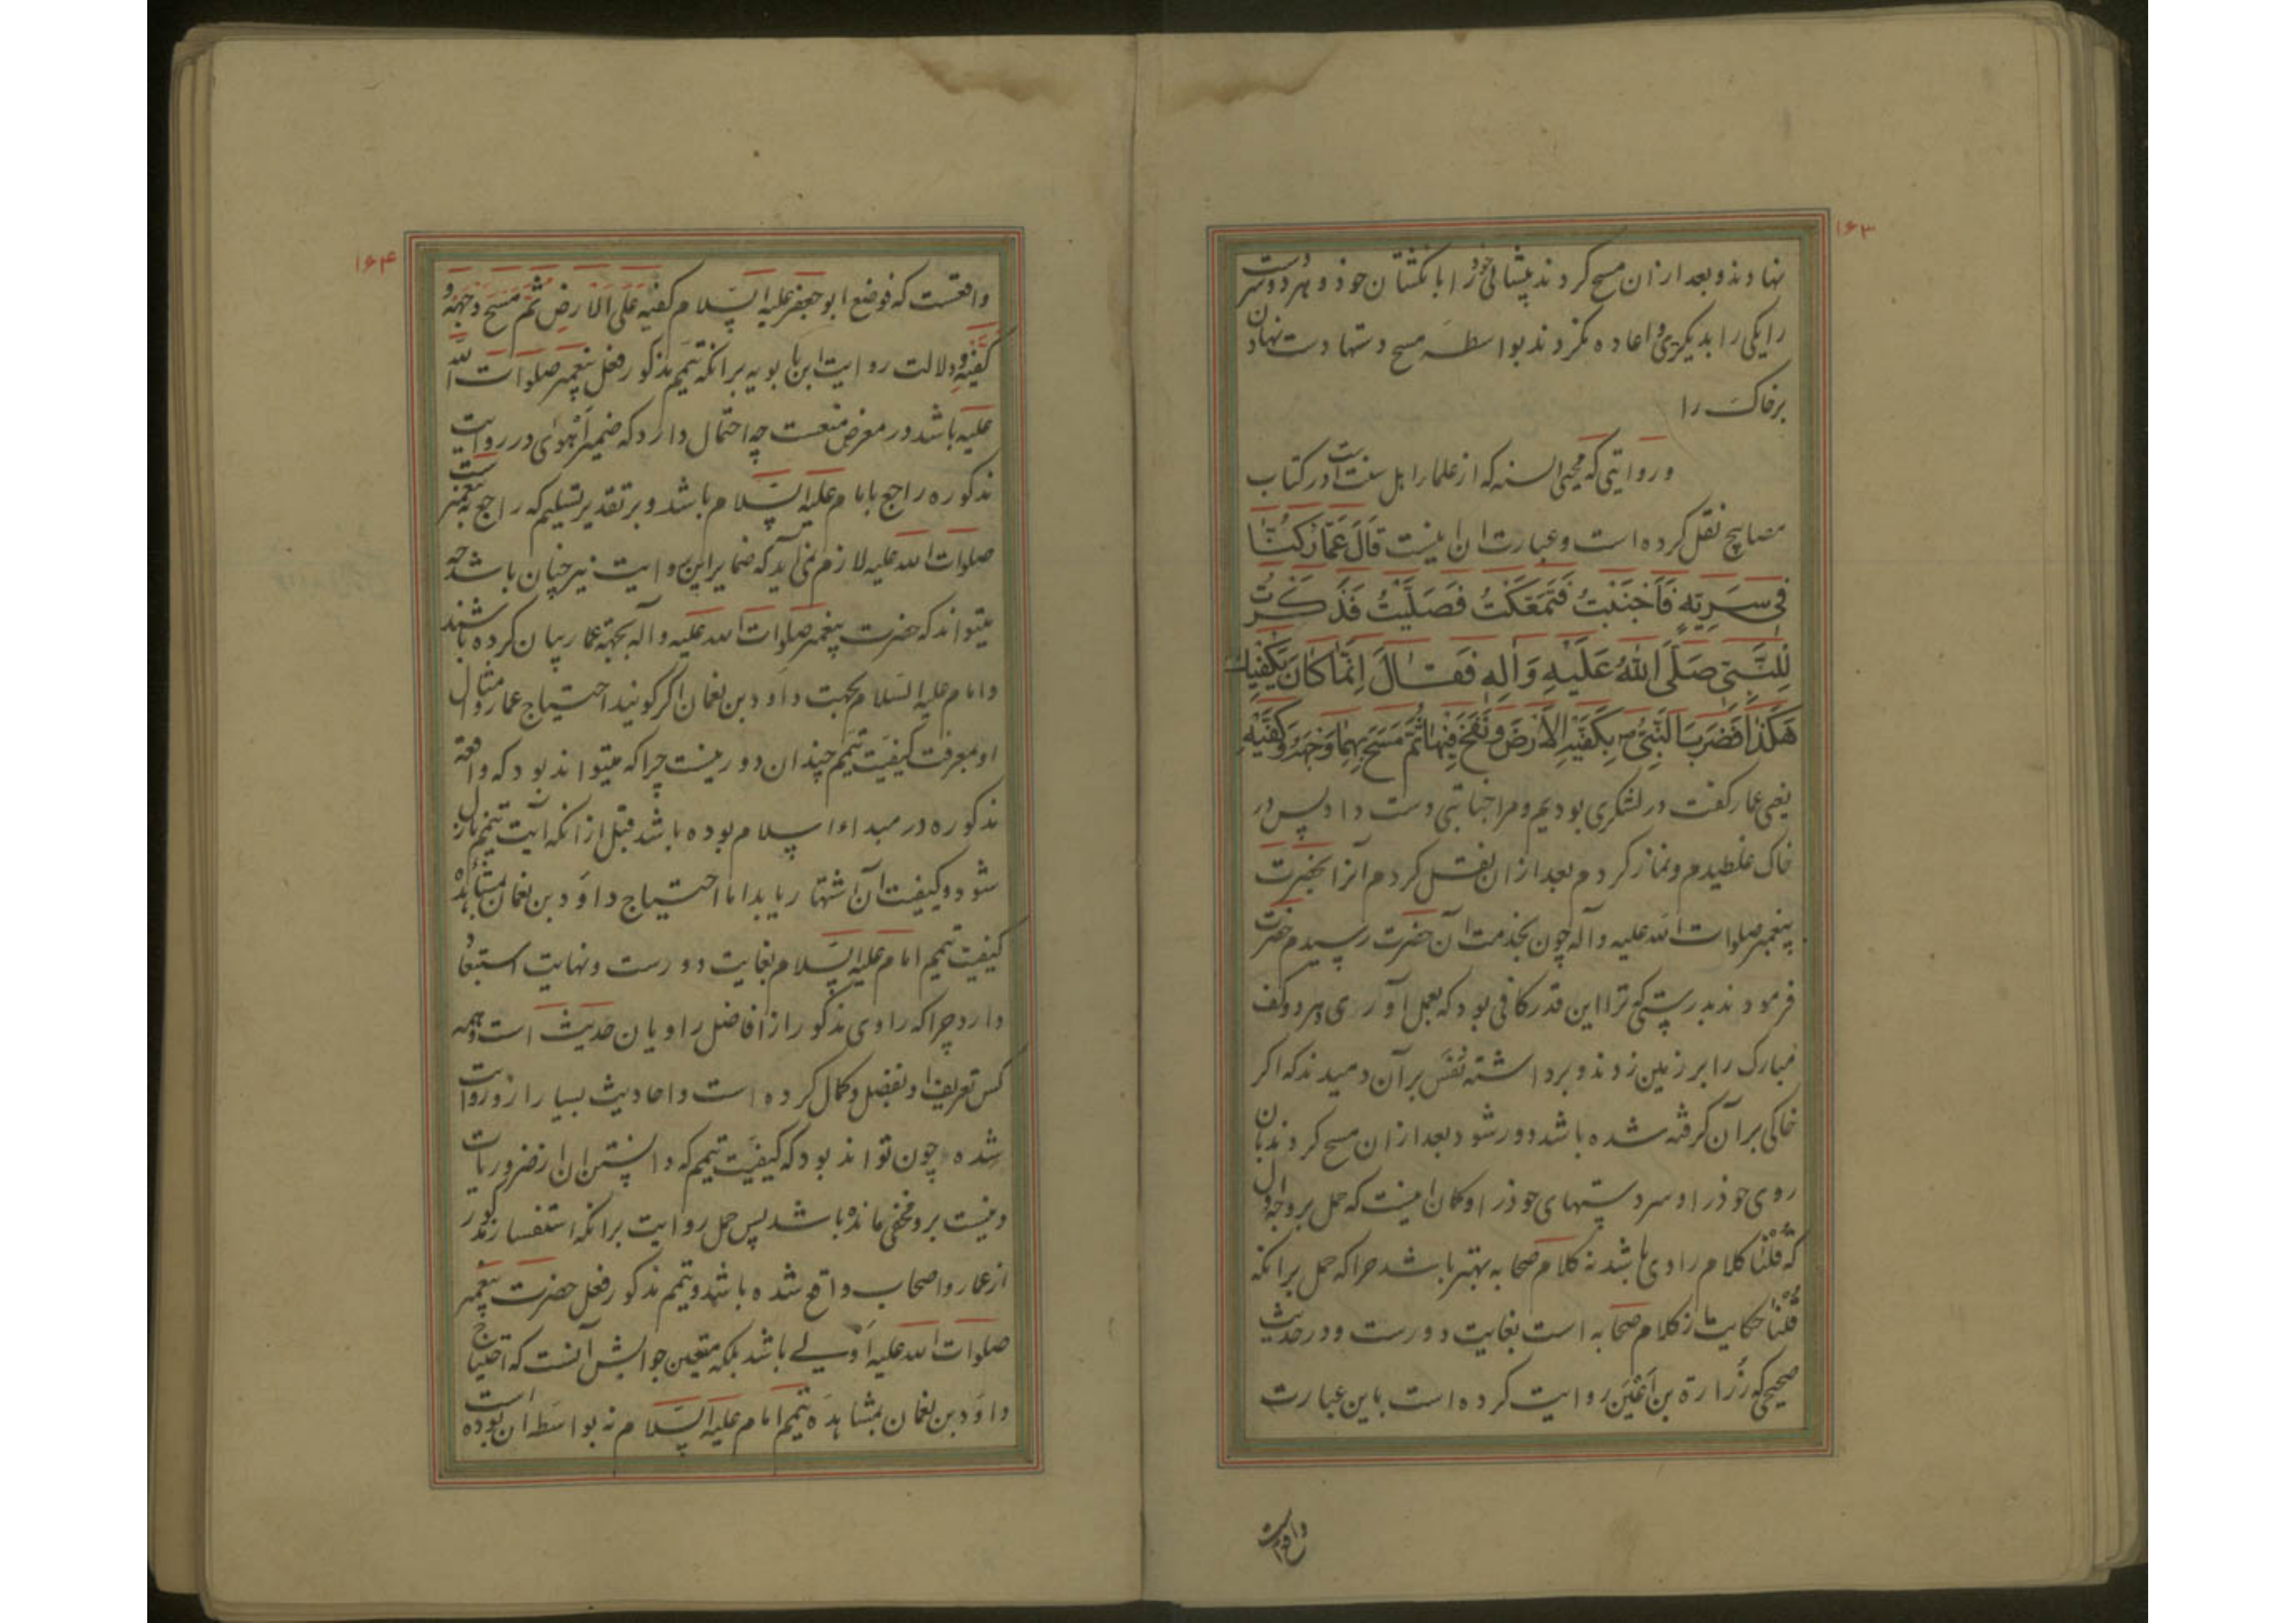 ۱۶۳
نهادند و بعد از ان مسح کردند پیشانی خود را بانکشتان خود و هر دو دست
را یکی را بدیکری و اعاده نکردند بواسطه مسح دستها دست نهادن
بر خاک را
و روایتی که محیی السنه که از علماء اهل سنت است در کتاب
مصابیح نقل کرده است و عبارت ان اینست قَالَ عَمَّار کُنَّا
فِی سَرِیَّةٍ فَأَجْنَبْتُ فَتَمَعَّکْتُ فَصَلَّیْتُ فَذَکَرْتُ
لِلنَّبِیِّ صَلَّی اللهُ عَلَیْهِ وَآلِهِ فَقَالَ اِنَّمَا کَانَ یَکْفِیكَ
هَکَذَا فَضَرَبَ النَّبِیُّ بِکَفَّیْهِ الْأَرْضَ وَنَفَخَ فِیهِمَا ثُمَّ مَسَحَ بِهِمَا وَجْهَهُ وَکَفَّیْهِ
یعنی عمار کفت در لشکری بودیم و مرا جنابتی دست داد پس در
خاک غلطیدم و نماز کردم بعد از ان نقل کردم آنرا بحضرت
پیغمبر صلوات الله علیه و آله چون بخدمت آن حضرت رسیدم حضرت
فرمودند بدرستی که ترا این قدر کافی بود که بعمل آوری و هر دو کف
مبارک را بر زمین زدند و برداشته نَفَس بر آن دمیدند که اکر
خاکی بر آن کرفته شده باشد دور شود بعد از ان مسح کردند بان
روی خود را و سر دستهای خود را و کمان اینست که حمل بر وجه اول
که قُلْنَا کلام راوی باشد نه کلام صحابه بهتر باشد چرا که حمل بر انکه
قُلْنَا حکایت از کلام صحابه است بغایت دورست و در حدیث
صحیحی که زُرَارة بن اَعْیَن روایت کرده است باین عبارت
واقعست
۱۶۴
واقعست که فوضع ابو جعفر علیه السلام کفیه علی الارض ثم مسح وجهه و
کفیه و دلالت روایت ابن بابویه بر انکه تیمم مذکور فعل پیغمبر صلوات الله
علیه باشد در معرض منعست چه احتمال دارد که ضمیر اَهْوٰی در روایت
مذکوره راجع بامام علیه السلام باشد و بر تقدیر تسلیم که راجع به پیغمبرست
صلوات الله علیه لازم نمی آید که ضمایر این روایت نیز چنان باشد چه
میتواند که حضرت پیغمبر صلوات الله علیه و آله بجهة عمار بیان کرده باشند
و امام علیه السلام بجهت داود بن نعمان اکر کویند احتیاج عمار و امثال
او بمعرفت کیفیت تیمم چندان دور نیست چرا که میتواند بود که واقعه
مذکوره در مبداء اسلام بوده باشد قبل از انکه آیت تیمم نازل
شود و کیفیت آن اشتهار یابد اما احتیاج داود بن نعمان بمشاهده
کیفیت تیمم امام علیه السلام بغایت دورست و نهایت استبعاد
دارد چرا که راوی مذکور از افاضل راویان حدیث است و همه
کس تعریف او بفضل و کمال کرده است و احادیث بسیار از و روایت
شده چون تواند بود که کیفیت تیمم که دانستن ان از ضروریات
دینست بر و مخفی مانده باشد پس حمل روایت بر انکه استفسار مذکور
از عمار و اصحاب واقع شده باشد و تیمم مذکور فعل حضرت پیغمبر
صلوات الله علیه اَوْلی باشد بلکه متعین جوابش آنست که احتیاج
داود بن نعمان بمشاهده تیمم امام علیه السلام نه بواسطه ان بوده است